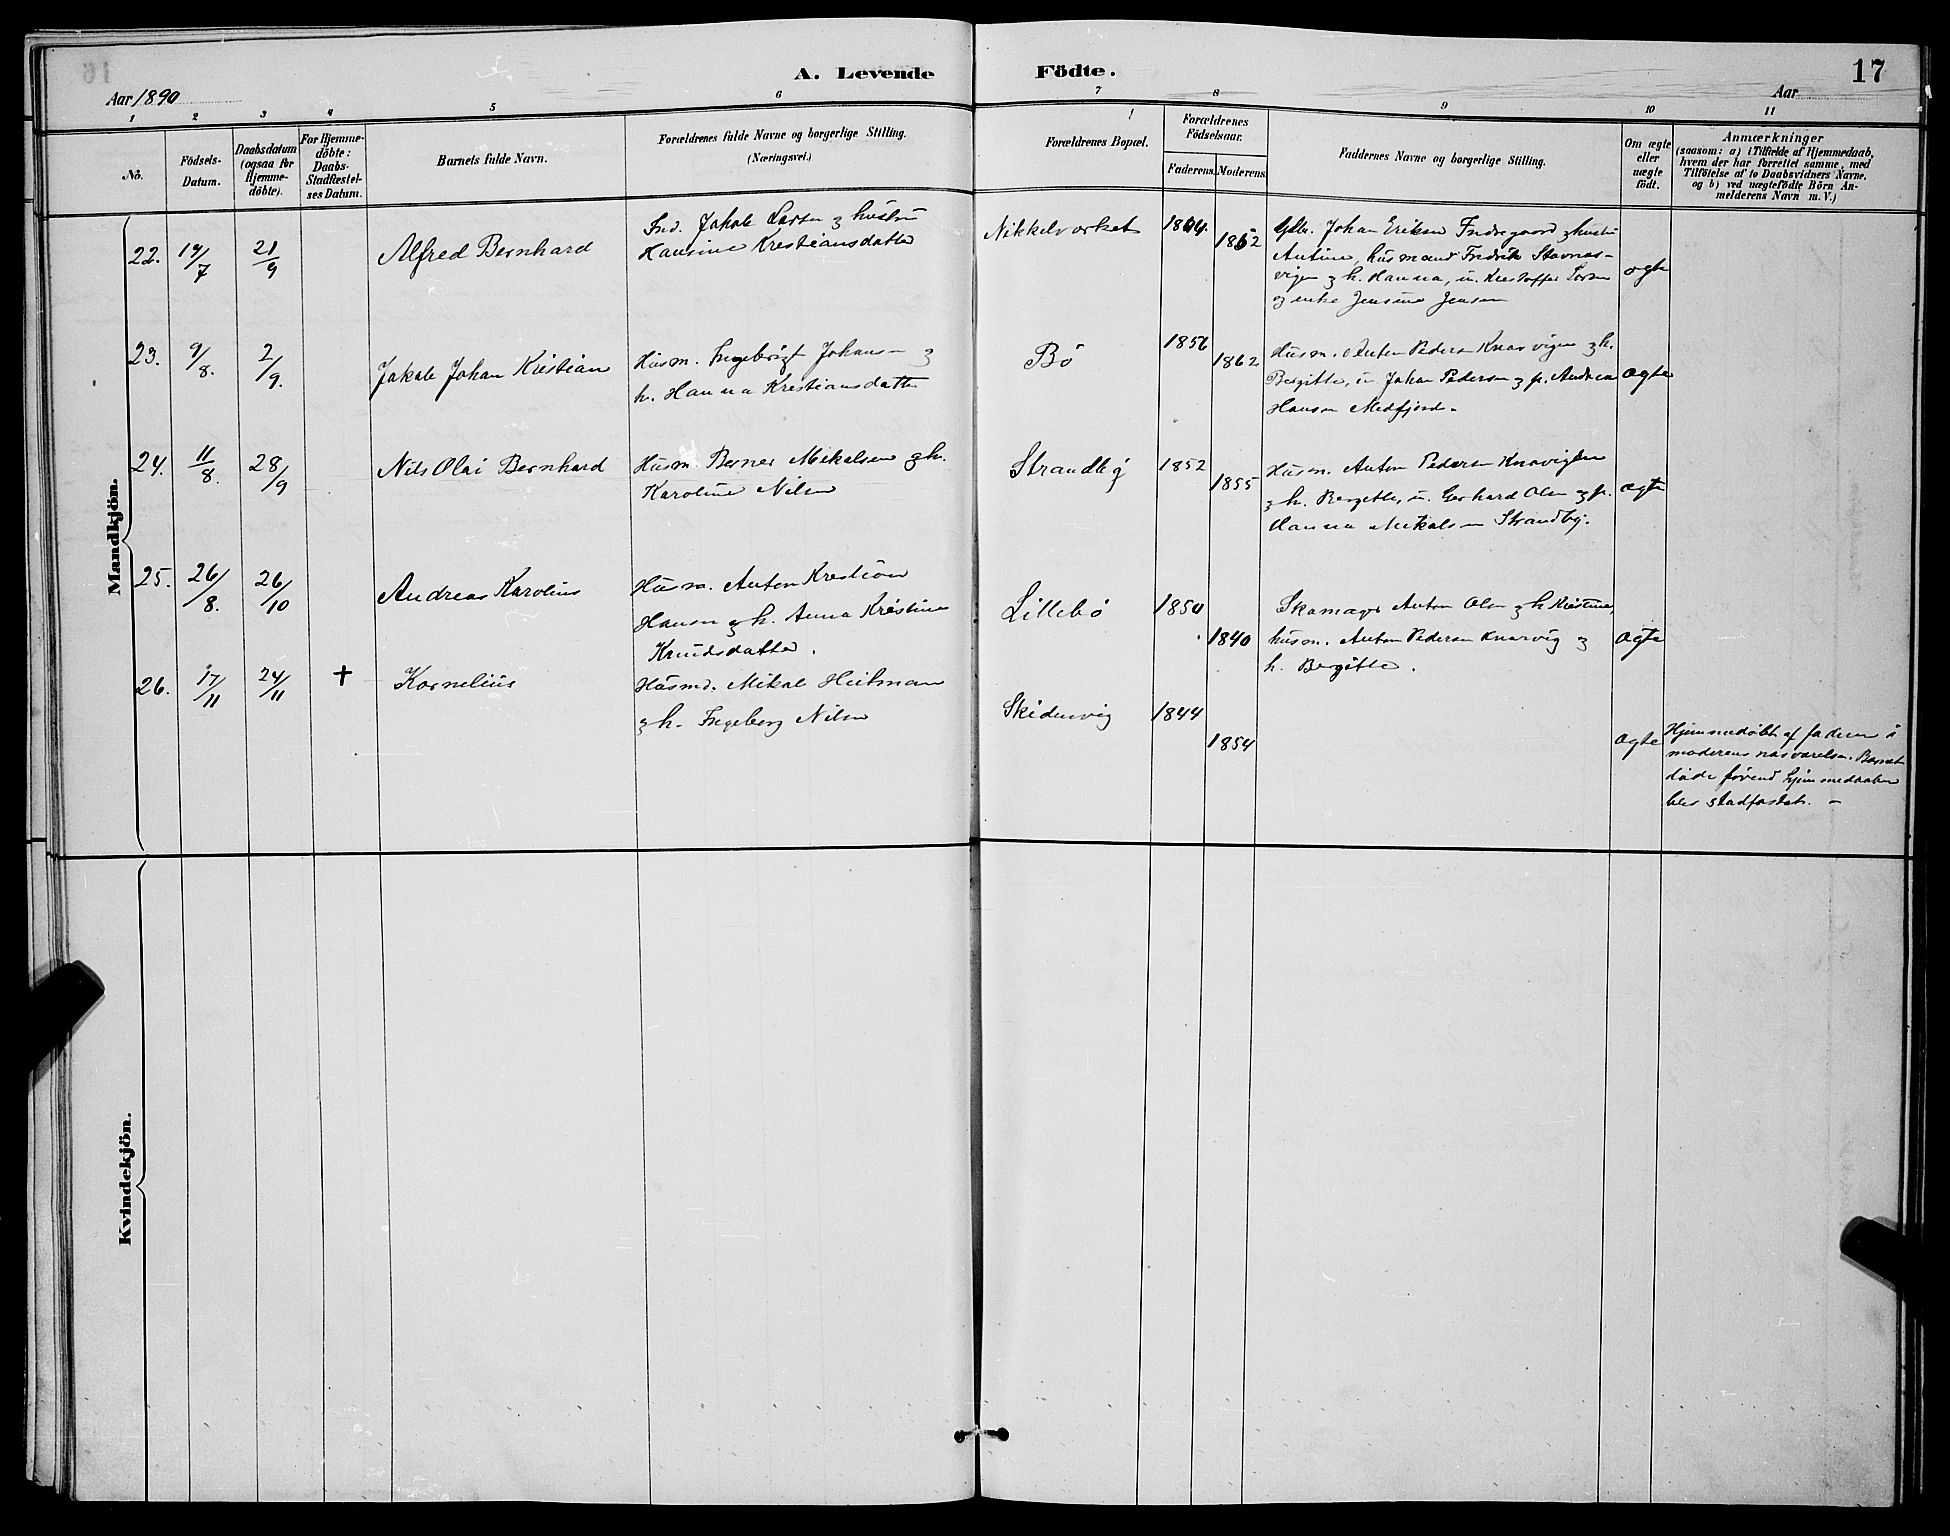 A. Levende Födte.
17
Aar 1890
Aar
1 2 3 4 5 6 7 8 9 10 11
No.
Födsels-
Datum.
Daabsdatum
(ogsaa for
Hjemme-
döbte).
For Hjemme-
döbte:
Daabs-
Stadfæstel-
ses Datum.
Barnets fulde Navn.
Forældrenes fulde Navne og borgerlige Stilling.
(Næringsvei.)
Forældrenes Bopæl.
Forældrenes
Födselsaar.
Faderens. Moderens.
Faddernes Navne og borgerlige Stilling.
Om ægte
eller
uægte
födt.
Anmærkninger
(saasom: a) i Tilfælde af Hjemmedaab,
hvem der har forrettet samme, med
Tilföielse af to Daabsvidners Navne,
og b) ved uægtefödte Börn An-
melderens Navn m. V.)
Mandkjön.
22. 14/7 21/9
Alfred Bernhard
Ind. Jakob Larsen & hustru
Hansine Kristiansdatter
Nikkelværket
1862
Johan Eriksen Indregaard & hustru
Antine, husmand Fredrik Stavnes-
vigen & h. Hanna, u. Kristoffer
og enke Jensine Jensen
ægte
23. 9/8. 2/9.
Jakob Johan Kristian
Husm. Ingebrigt Johansen &
h. Hanna Kristiansdatter
Bö
1856
1862
Husm. Anton Pedersen Knarvigen & h.
Bergitte, u. Johan Pedersen & p. Andrea
Hansen Medfjord.
ægte
24. 11/8. 28/9
Nils Olai Bernhard
Husm. Berner Mikalsen & h.
Karoline Nilsen
Strandby
1852
1855
Husm. Anton Pedersen Knarvigen
& h. Bergitte, u. Gerhard Olsen & p.
Hanna Mikalsen Strandby.
ægte
25. 26/8. 26/10
Andreas Karolius
Husm. Anton Kristian
Hansen & h. Anna Kristine
Knudsdatter.
Lillebö
1850
1840
Skomager Anton Olsen & h Kristine,
husm. Anton Pedersen Knarvig &
h. Bergitte.
ægte
26. 17/11 24/11 +
Kornelius
Husmd. Mikal Heitman
& h. Ingeborg Nilsen
Skidenvig
1844
1854
ægte
Hjemmedøbt af faderen i
moderens nærværelse. Barnet
døde förend hjemmedaaben
blev stadfæstet. -
Kvindekjön.